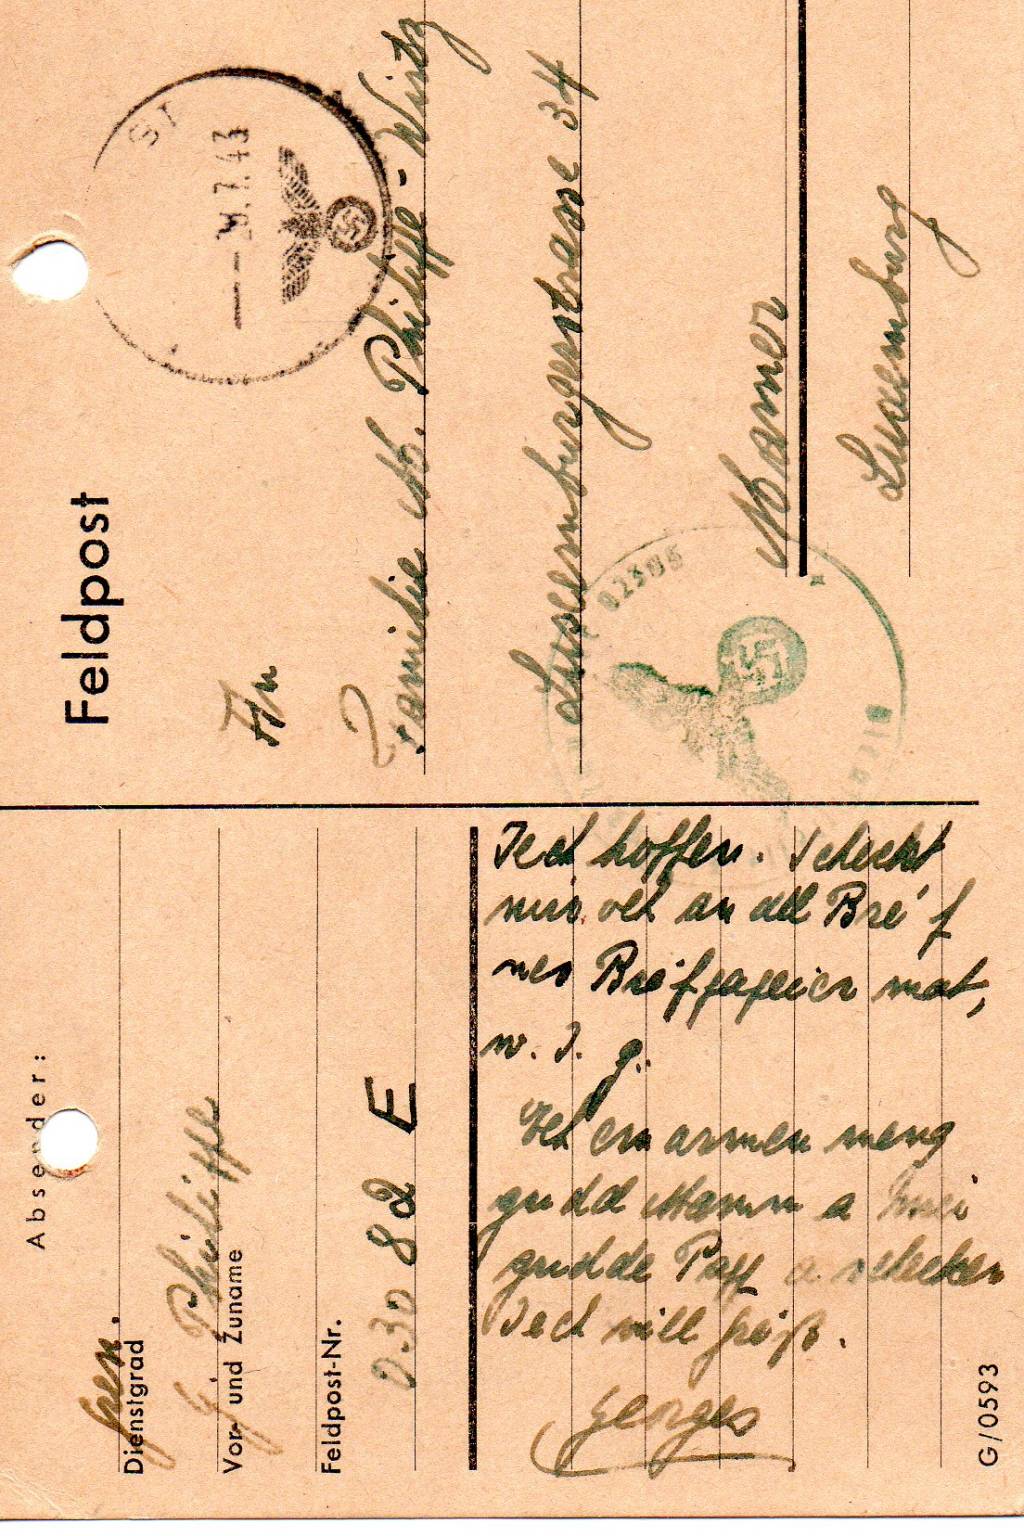 Feldpost
S1
28.7.43
An
Familie M. Philippe-Wirtz
Luxemburgerstrasse 34
Mamer
Luxemburg
Absender:
Gren.
Dienstgrad
G. Philippe
Vor- und Zuname
Feldpost-Nr.
03082 E
Iech hoffen. Schéckt
mir och an dél Bréf
nes Bréifpapeier mat,
w. I. g.
Ech ëm armen meng
gudd Mamm a mei
gudde Papp a schecken
Iech vill Gréiß.
Georges
G/0593